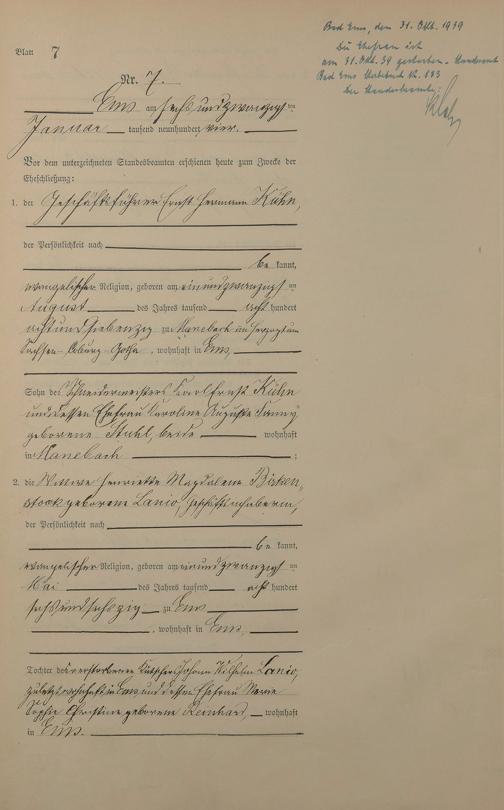 Bad Ems, den 31. Okt. 1939
Die Ehefrau ist
am 31. Okt. 39 gestorben. Standesamt
Bad Ems Sterbebuch Nr. 133
Der Standesbeamte:
Blatt 7
Nr. 7.
Ems am sechsundzwanzigsten
Januar tausend neunhundert vier.
Vor dem unterzeichneten Standesbeamten erschienen heute zum Zwecke der
Eheschließung:
1. der Geschäftsführer Ernst Hermann Kühn,
der Persönlichkeit nach
be kannt,
evangelischer Religion, geboren am einundzwanzigsten
August des Jahres tausend acht hundert
achtundsiebenzig zu Manebach im Herzogtum
Sachsen-Coburg-Gotha, wohnhaft in Ems,
Sohn des Schneidermeisters Carl Ernst Kühn
und dessen Ehefrau Caroline Auguste Fanny
geborene Stuhl, beide wohnhaft
in Manebach;
2. die Wittwe Henriette Magdalene Birken-
stock geborene Lanio, Geschäftsinhaberin,
der Persönlichkeit nach
be kannt,
evangelischer Religion, geboren am einundzwanzigsten
Mai des Jahres tausend acht hundert
sechsundsechszig zu Ems
, wohnhaft in Ems,
Tochter des verstorbenen Kutschers Johann Wilhelm Lanio,
zuletzt wohnhaft in Ems und dessen Ehefrau Marie
Sophie Christine geborene Reinhard, wohnhaft
in Ems.